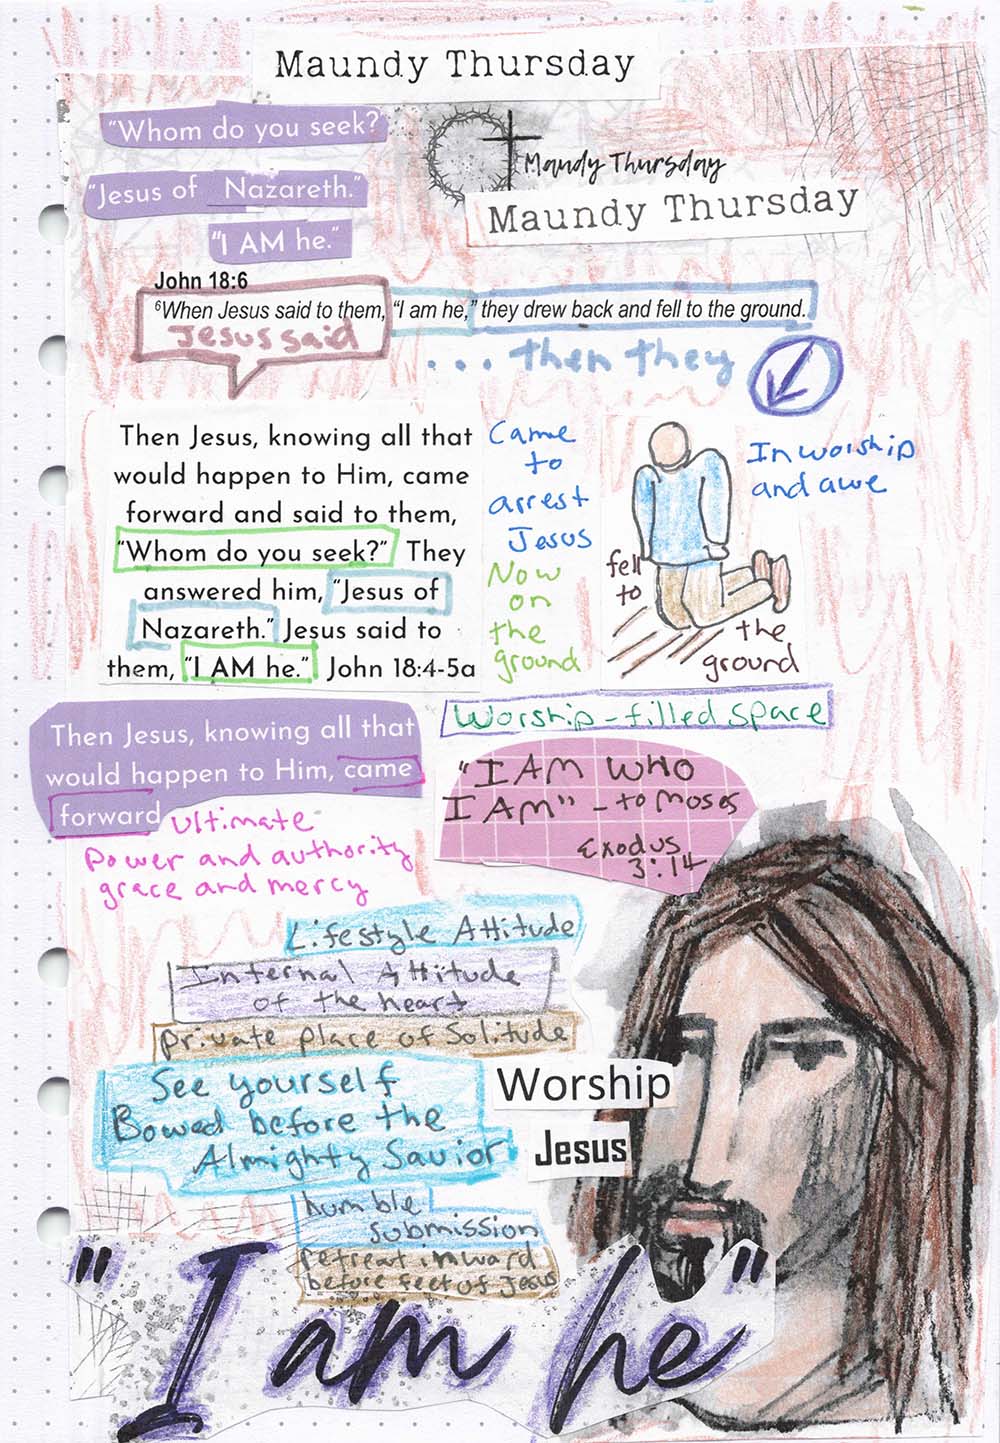 Maundy Thursday
"Whom do you seek?"
"Jesus of Nazareth."
"I AM he."
Maudy Thursday
Maundy Thursday
John 18:6
6When Jesus said to them, "I am he," they drew back and fell to the ground.
Jesus said
... then they
Then Jesus, knowing all that
would happen to Him, came
forward and said to them,
"Whom do you seek?" They
answered him, "Jesus of
Nazareth." Jesus said to
them, "I AM he." John 18:4-5a
Came
to
arrest
Jesus
Now
on
the
ground
In worship
and awe
fell
to
the
ground
Worship-filled space
Then Jesus, knowing all that
would happen to Him, came
forward
ultimate
power and authority
grace and mercy
"I AM WHO
I AM" - to Moses
Exodus
3:14
Lifestyle Attitude
Internal Attitude
of the heart
private place of Solitude
See yourself
Bowed before the
Almighty Savior
Worship
Jesus
humble
submission
retreat inward
before feet of Jesus
"I am he"